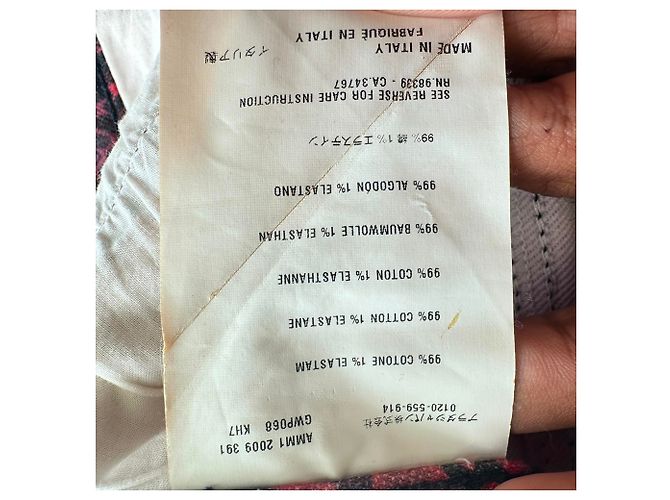 AMM1 2009 391
GWP068 KH7
プラダジャパン株式会社
0120-559-914
99% COTONE 1% ELASTAM
99% COTTON 1% ELASTANE
99% COTON 1% ELASTHANNE
99% BAUMWOLLE 1% ELASTHAN
99% ALGODÓN 1% ELASTANO
99% 綿 1% エラスティン
SEE REVERSE FOR CARE INSTRUCTION
RN.98339 - CA.34767
イタリア製
MADE IN ITALY
FABRIQUÉ EN ITALY